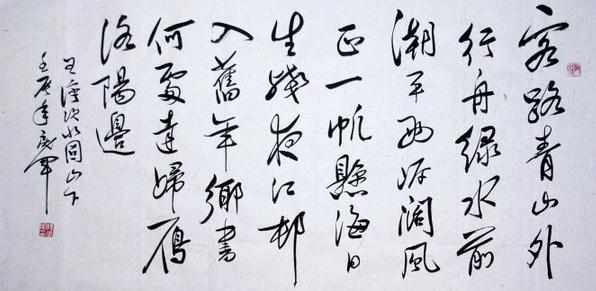 客路青山外
行舟綠水前
潮平两岸闊風
正一帆懸海日
生殘夜江邨
入舊年鄉書
何處達歸雁
洛陽邊
王灣次北固山下
壬辰年